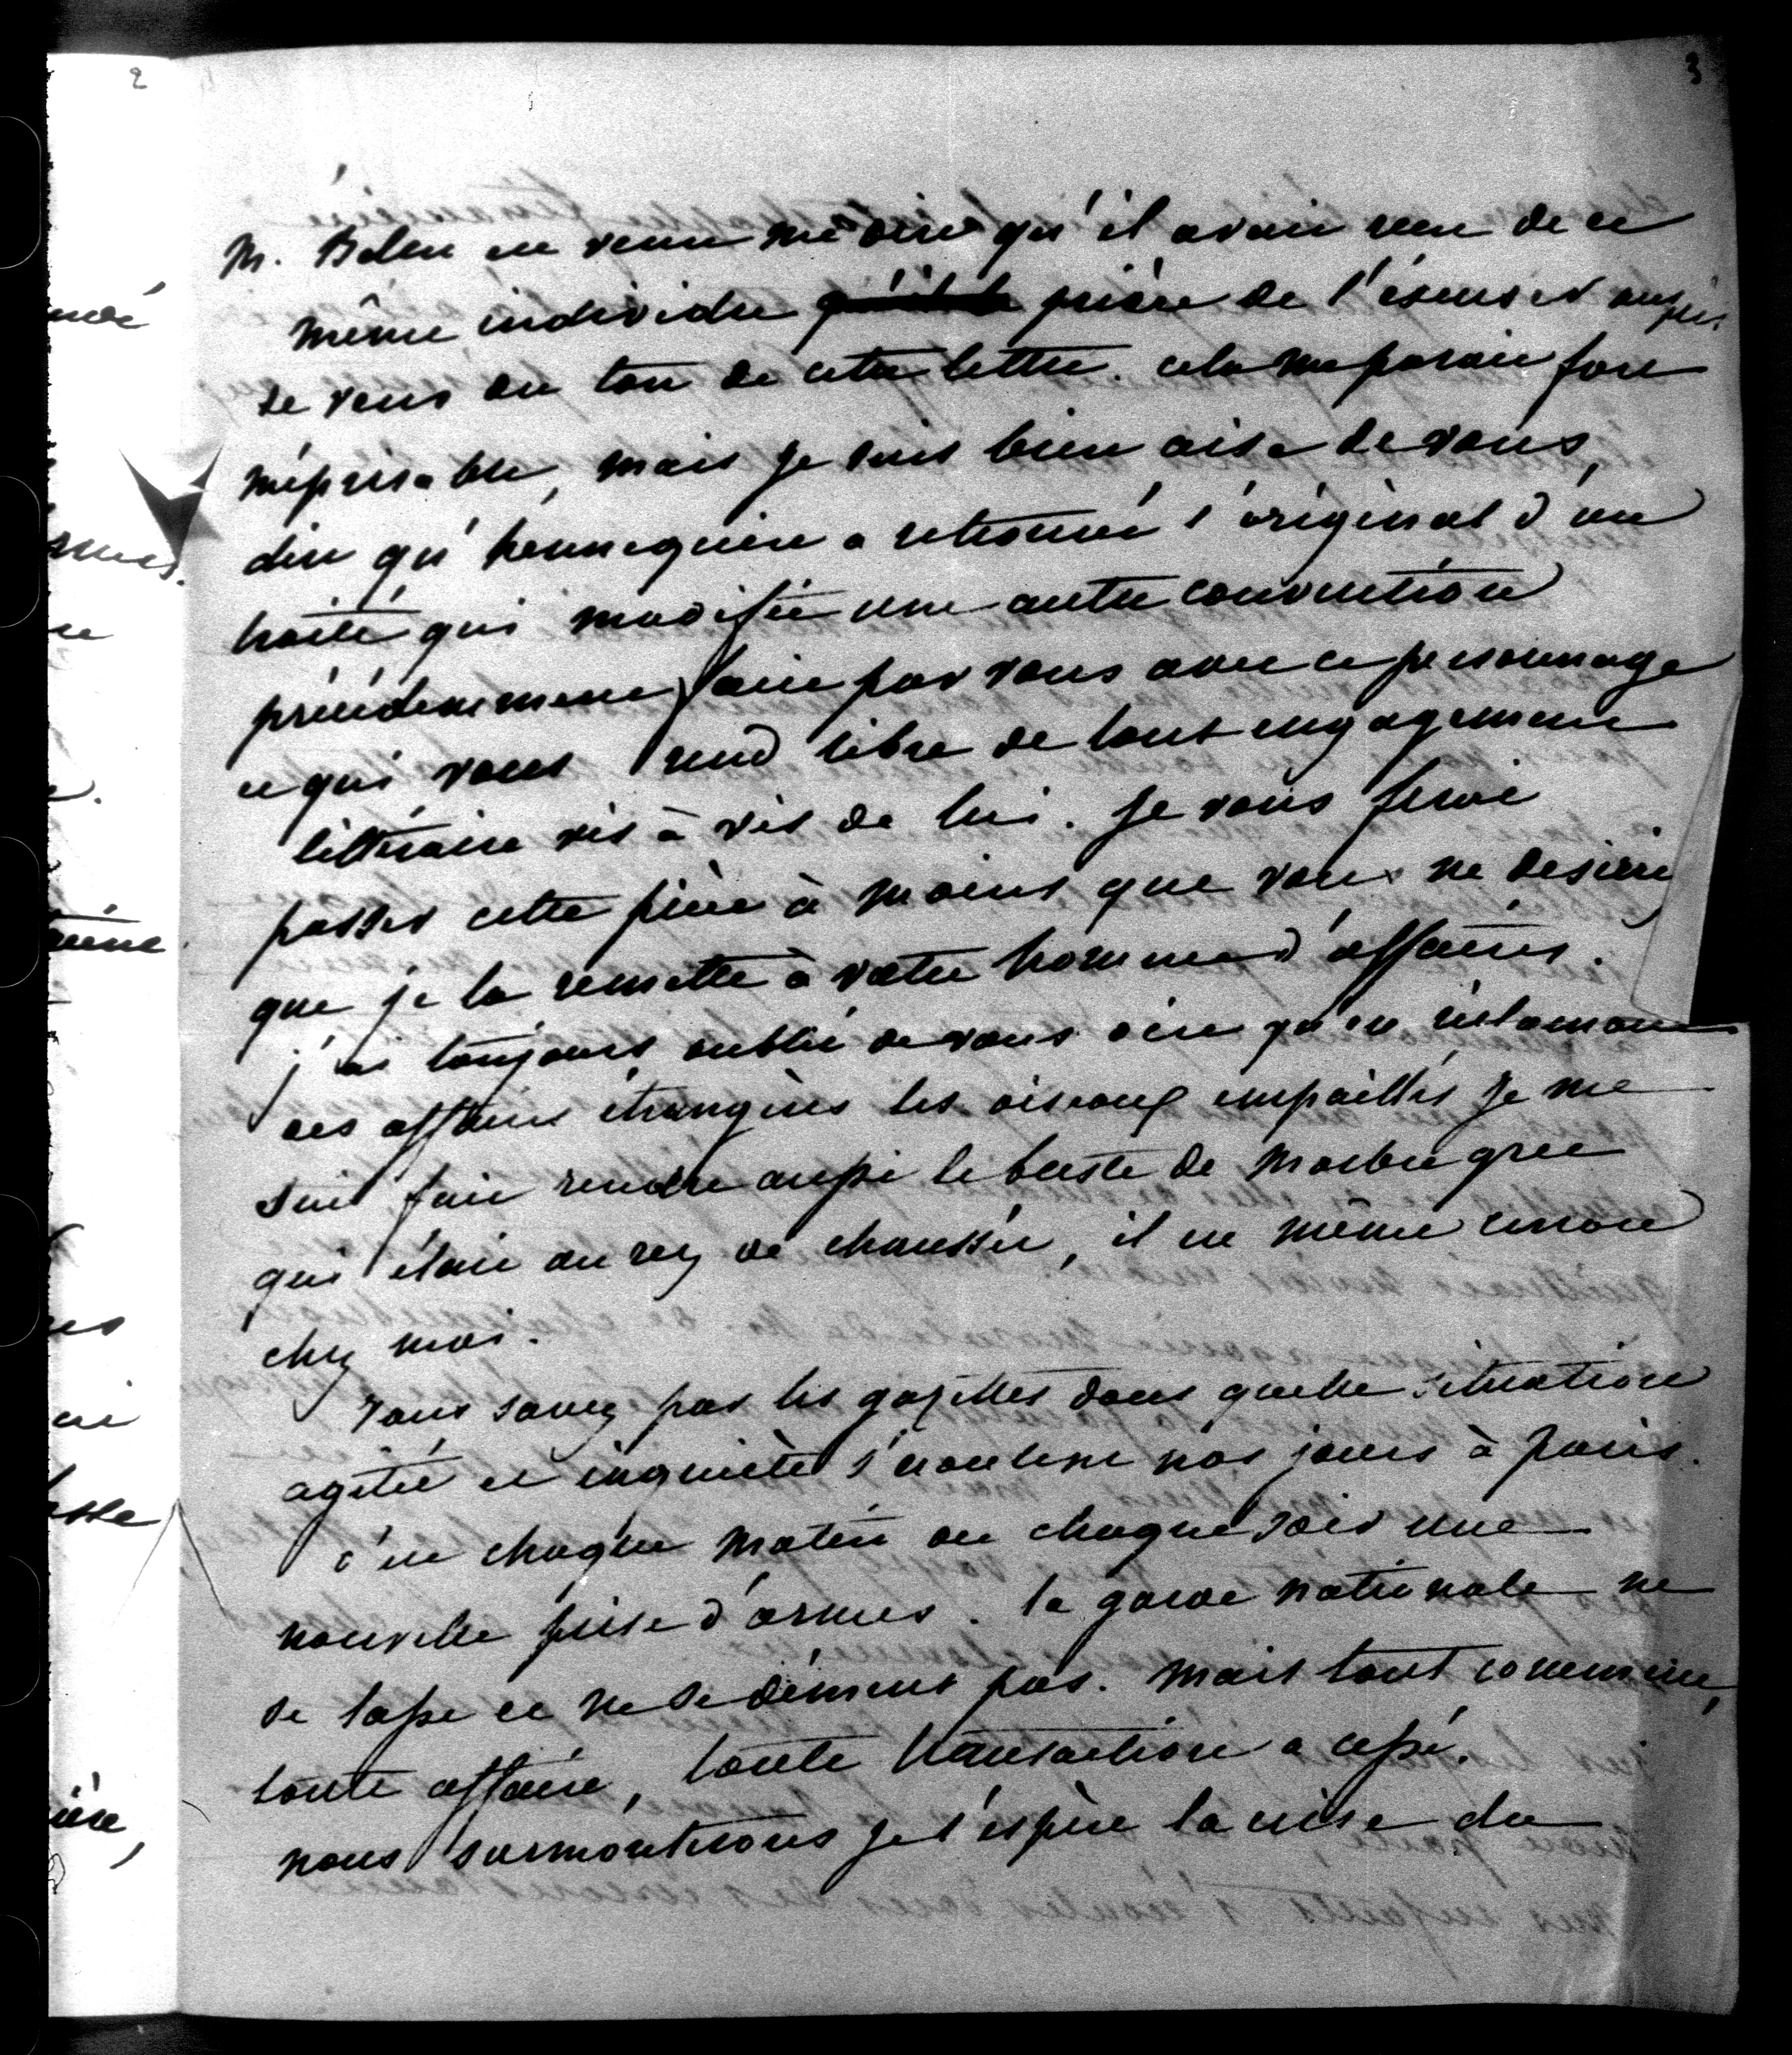 2
3
M. Belin est venu me dire qu'il avait reçu de ce
même individu prière de l'excuser auprès
de vous du ton de cette lettre. cela me parait fort
méprisable, mais je suis bien aise de vous
dire qu'hennequin a retrouvé l'original d'un
traité qui modifie une autre convention
précédemment faite par vous avec ce personnage
ce qui vous rend libre de tout engagement
littéraire vis à vis de lui. je vous ferai
passer cette pièce à moins que vous ne desiriez
que je la remette à votre homme d'affaires.
j'ai toujours oublié de vous dire qu'en réclamant
des affaires étrangères les oiseaux empaillés je me
suis fait rendre aussi le buste de marbre grec
qui était au rez de chaussée, il est même encore
chez moi.
Vous savez par les gazettes dans quelle situation
agitée et inquiète s'écoulent nos jours à paris.
c'est chaque matin ou chaque soir une
nouvelle prise d'armes. la garde nationale ne
se lasse et ne se dément pas. mais tout commerce,
toute affaire, toute transaction a cessé.
nous surmonterons je l'espère la crise du